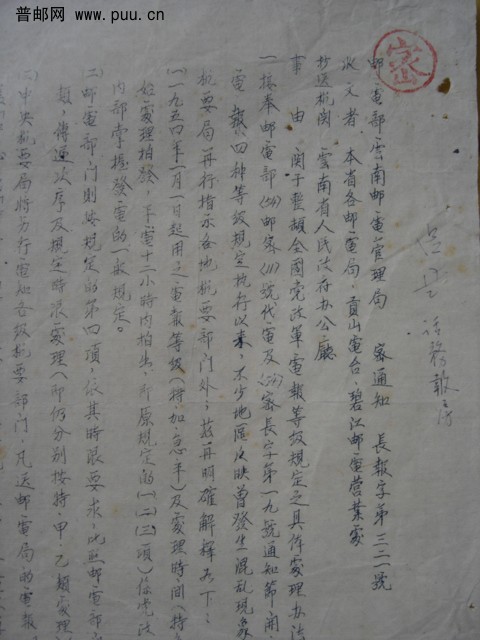 普邮网 www.puu.cn
密
邮電部雲南邮電管理局 密通知 長報字第三二一號
收文者 本省各邮電局、貢山電台、碧江邮電营業處
抄送机関 雲南省人民政府办公廳
事 由 関于重頒全國党政軍電報等級規定之具体處理办法
一接奉邮電部(54)邮密(111)號代電及(54)密長字第一九號通知節開
電報四种等級規定执行以来，不少地區反映曾發生混乱現象
机要局再行指示各地机要部门外，茲再明確解釋如下：
(一)一九五四年一月一日起用之電報等級(特、加、急、平)及處理時間(特
始處理拍發，平電十二小時内拍出，即原規定的(一)(二)(三)項)係党政
内部掌握發電的一般規定。
(二)邮電部门則按規定的第四項，依其時限要求，比照邮電部
類，傳遞次序及規定時限處理(即仍分别按特、甲、乙類處理
(三)中央机要局將另行電知各級机要部门，凡送邮電局的電報
話務報房